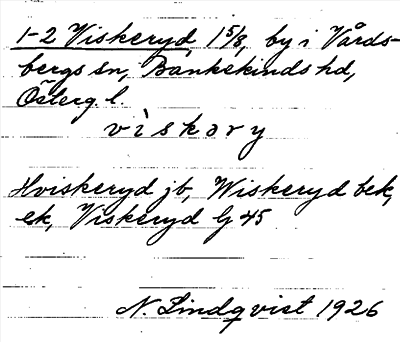 1-2 Viskeryd, 1 5/8, by i Vårds-
bergs sn, Bankekinds hd,
Österg. l.
viskəry
Hviskeryd jb, Wiskeryd bek,
ek, Viskeryd G 45
N. Lindqvist 1926